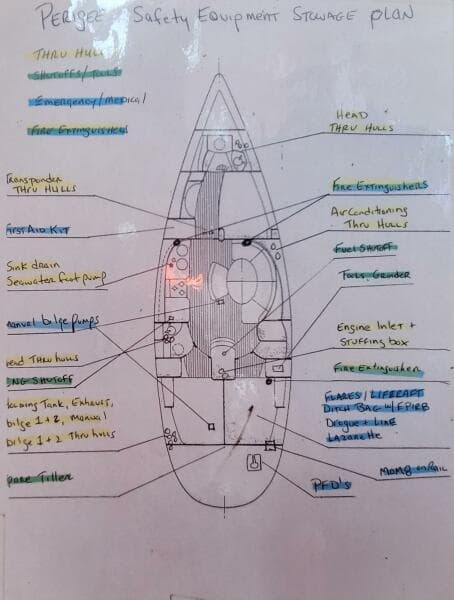 PERIGEE Safety Equipment Stowage plan
Thru Hulls
Shutoffs/Tools
Emergency/Medical
Fire Extinguishers
Head
Thru Hulls
Transponder
Thru Hulls
Fire Extinguishers
First Aid Kit
Air Conditioning
Thru Hulls
Fuel Shutoff
Sink drain
Seawater foot pump
Tools, Grinder
manual bilge pumps
Engine Inlet +
Stuffing box
Head Thru hulls
Shutoff
Fire Extinguisher
Tank, Exhaust,
bilge 1+2, Manual
bilge 1+2 Thru hulls
Flares / Liferaft
Ditch Bag w/ EPIRB
Drogue + Line
Lazarette
Spare Tiller
on Rail
PFD's